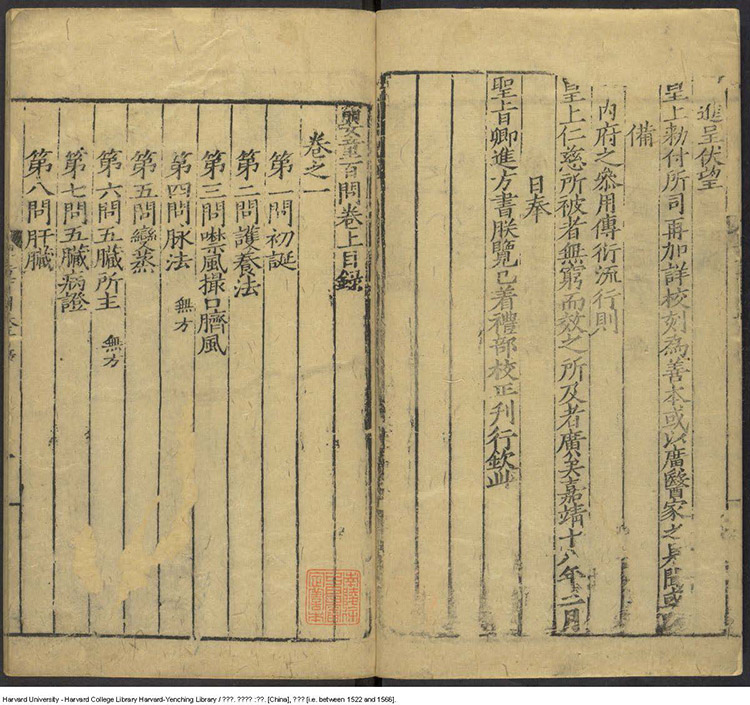 進呈伏望
皇上勑付所司再加詳校刻為善本或以廣醫家之見聞或
備
內府之叅用傳衍流行則
皇上仁慈所被者無窮而效之所及者廣矣嘉靖十八年二月
日奉
聖旨卿進方書朕覽已着禮部校正刊行欽此
嬰童百問卷上目錄
卷之一
第一問初誕
第二問護養法
第三問噤風撮口臍風
第四問脉法 無方
第五問變蒸
第六問五臟所主 無方
第七問五臟病證
第八問肝臟
Harvard University - Harvard College Library Harvard-Yenching Library / ???. ???? :??. [China], ??? [i.e. between 1522 and 1566].